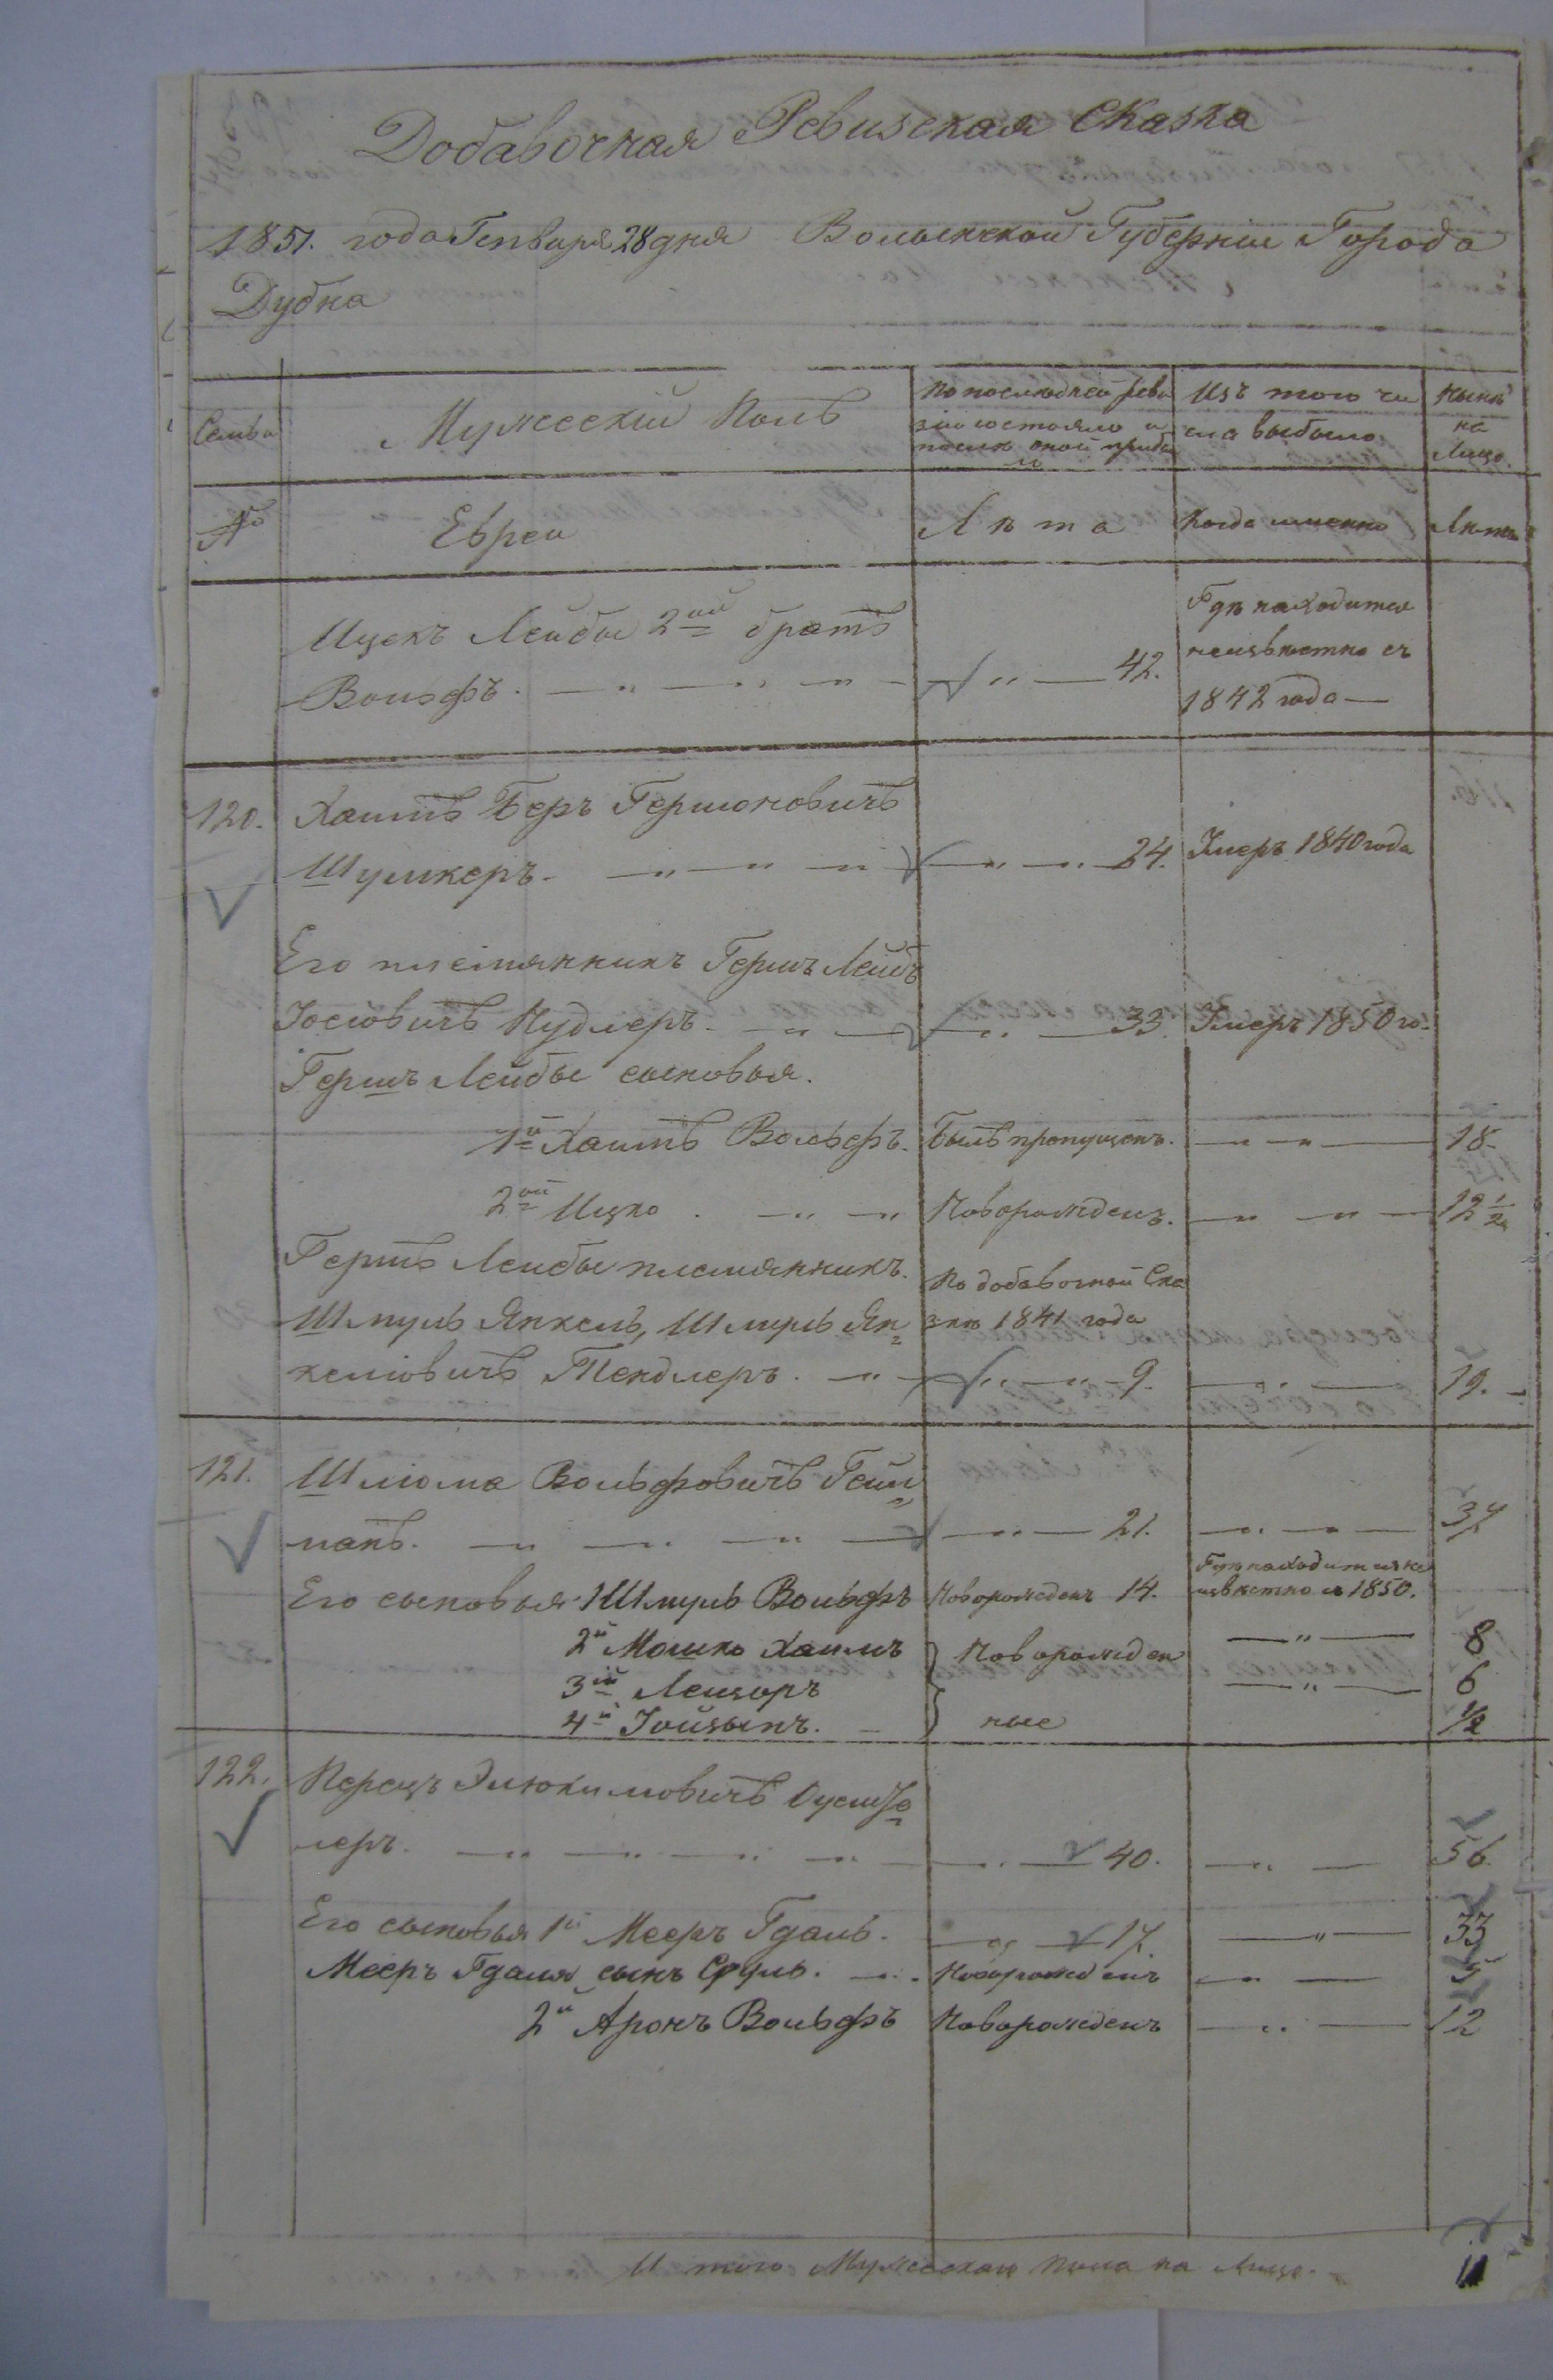 Добавочная Ревизская Сказка
1851. года Генваря 28 дня Волынской Губернiи Города
Дубна
Семьи
Мужескiй Полъ
По последней реви
зiи состояло и
после оной прибы
ло
Изъ того чи
сла выбыло
Ныне
на
Лицо
№
Евреи
Лета
Когда именно
Лета
Ицекъ Лейбы 2ой братъ
Вольфъ. 42.
Где находится
неизвестно съ
1842 года
120. Хаимъ Беръ Гершоновичъ
Шумкеръ. 24. Умеръ 1840 года
Его племянникъ Гершъ Лейбъ
Iосiовичъ Нудлеръ. 33. Умеръ 1850 го.
Гершъ Лейбы сыновья.
1й Хаимъ Вольфъ. Былъ пропущенъ. 18.
2ой Ицко. Новорожденъ. 12 ½
Гершъ Лейбы племянникъ. По добавочной Ска
Шмуль Янкель, Шмуль Ян= зке 1841 года
келiовичъ Тендлеръ. 9. 19.
121. Шлiома Вольфовичъ Гейм=
манъ. 21. 37
Его сыновья 1 Шмуль Вольфъ Новорожденъ 14. Где находится не
известно съ 1850.
2й Мошко Хаимъ Новорожден 8
3iй Лейзоръ 6
4й Iойзыпъ. ные ½
122. Перецъ Элюкимовичъ
леръ. 40. 56.
Его сыновья 1й Мееръ Гдаль. 17. 33
Мееръ Гдаля сынъ Сруль. Новорожденъ 5
2й Аронъ Вольфъ Новорожденъ 12
И того Мужескаго пола на лицо. 11